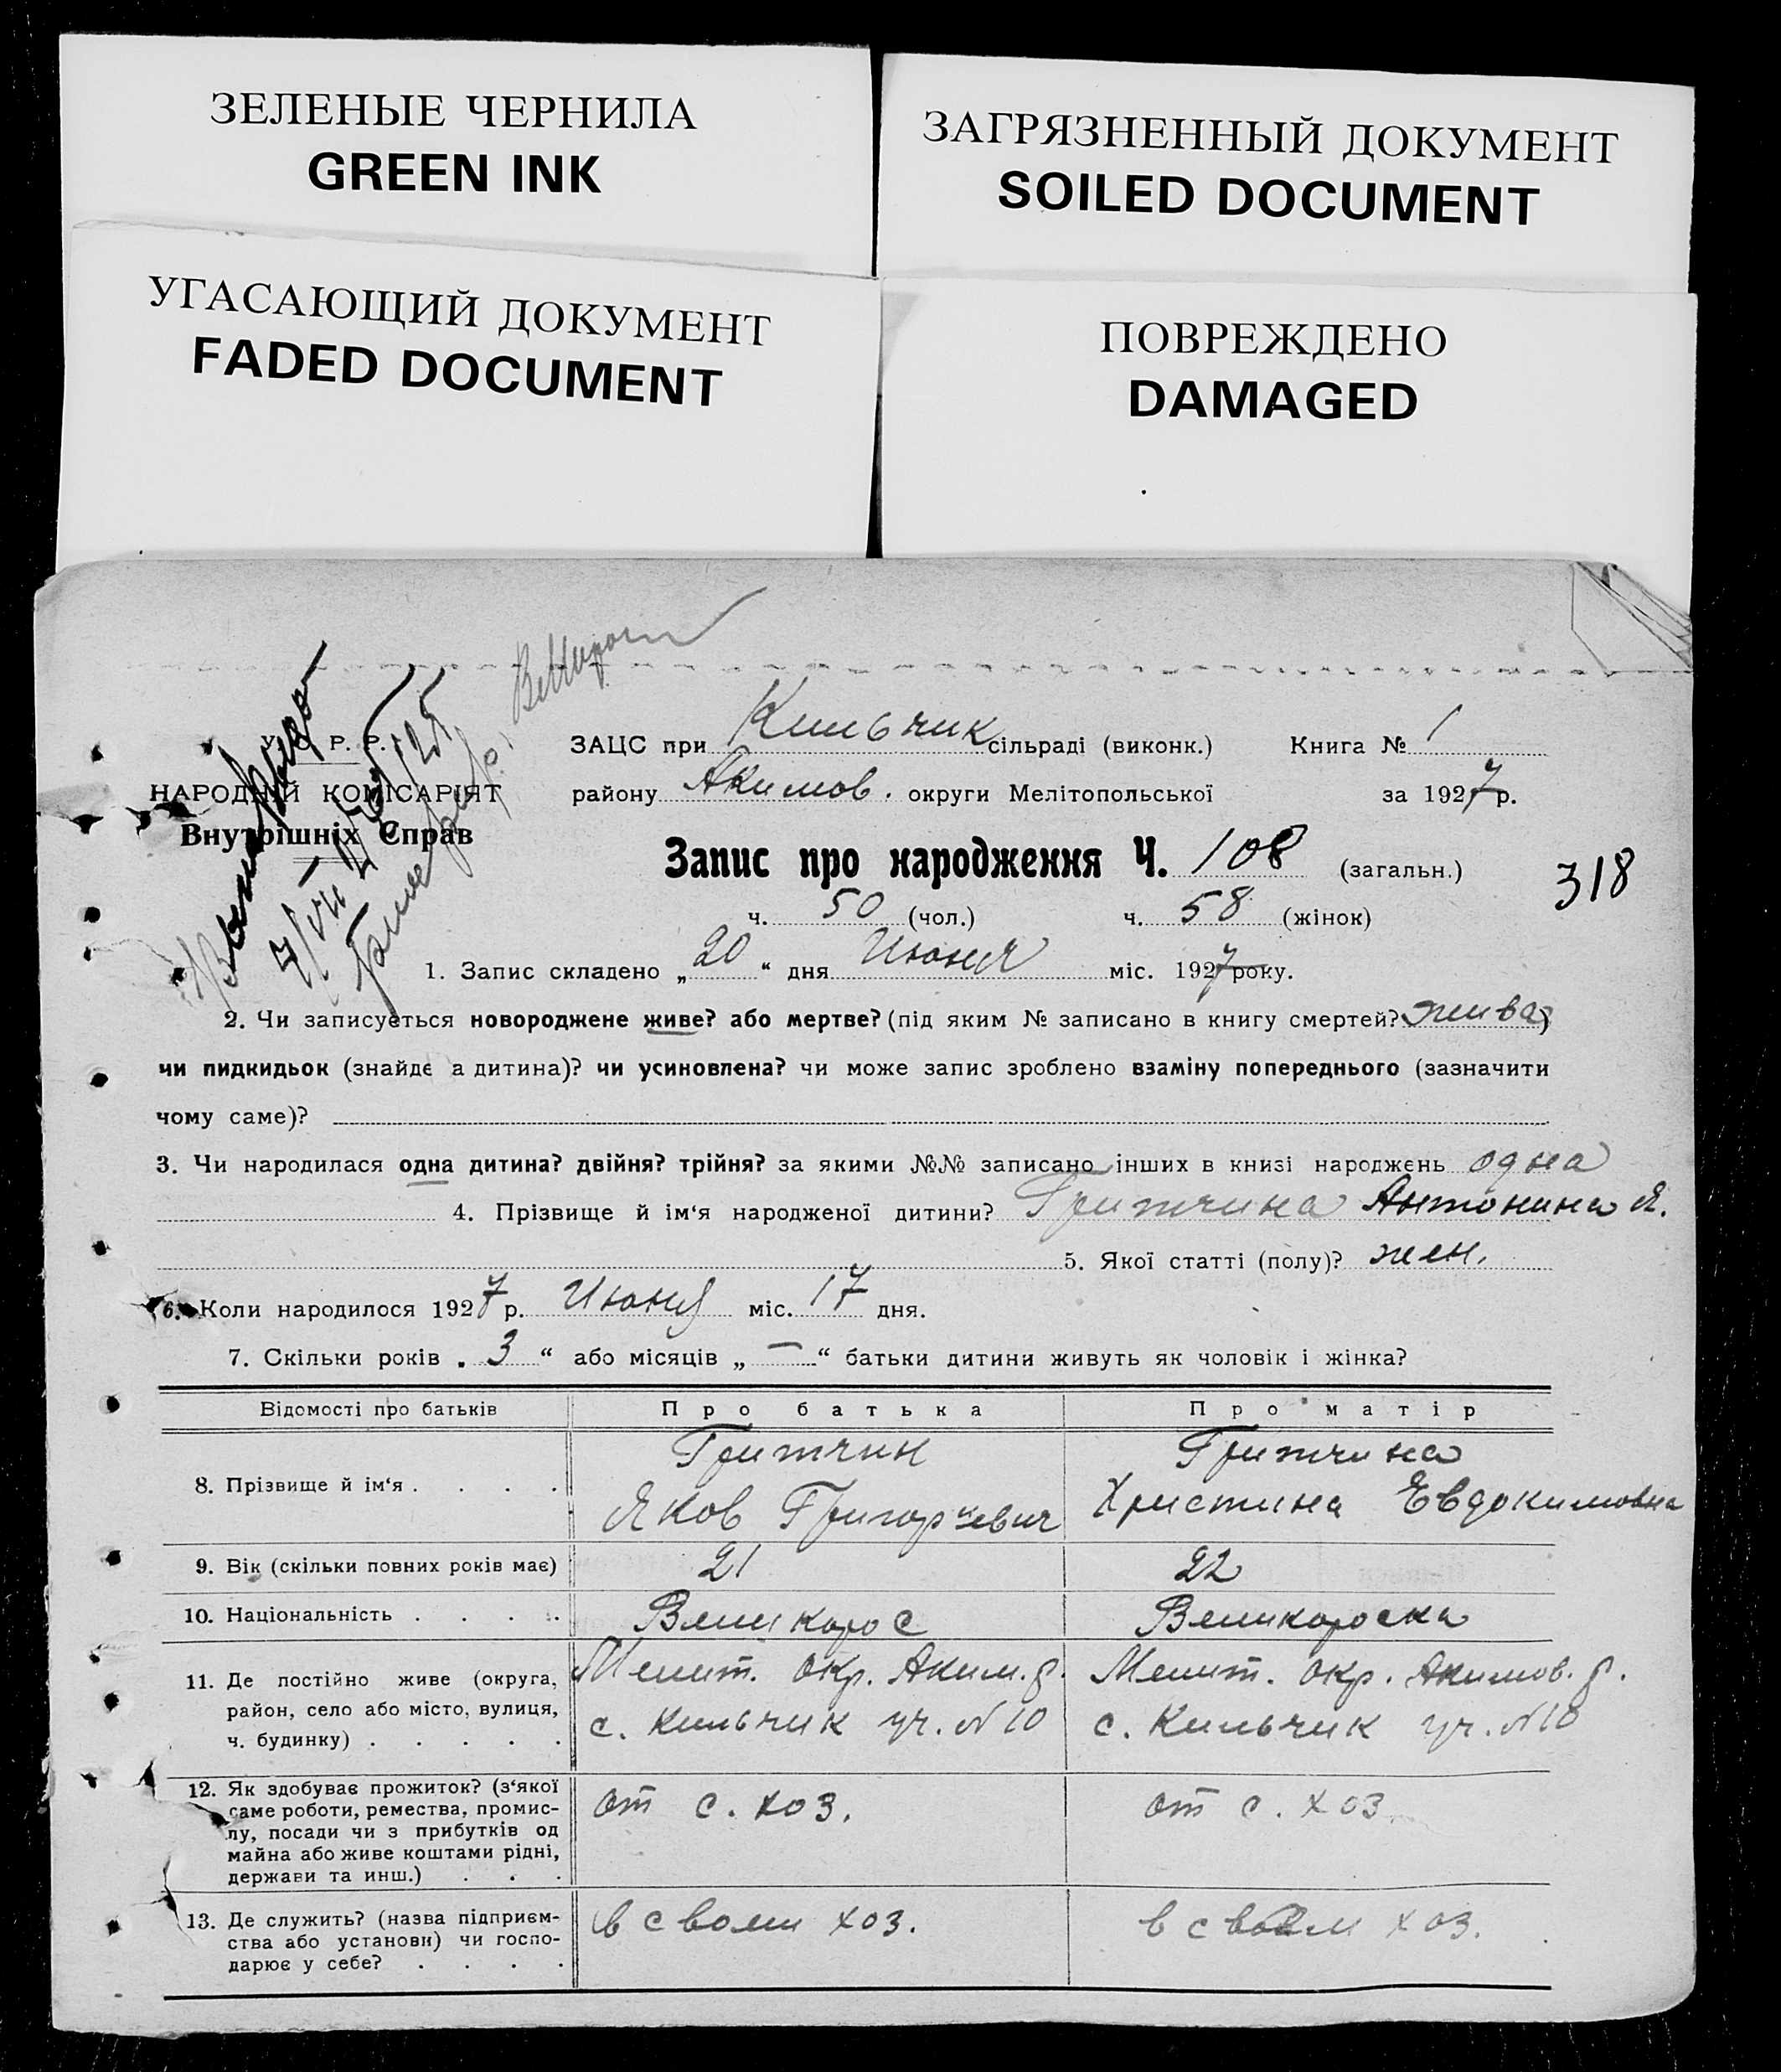 ЗЕЛЕНЫЕ ЧЕРНИЛА
GREEN INK
ЗАГРЯЗНЕННЫЙ ДОКУМЕНТ
SOILED DOCUMENT
УГАСАЮЩИЙ ДОКУМЕНТ
FADED DOCUMENT
ПОВРЕЖДЕНО
DAMAGED
У. С. Р. Р.
НАРОДНІЙ КОМІСАРІЯТ
Внутрішніх Справ
ЗАЦС при Кильчик сільраді (виконк.) Книга № 1
району Акимов. округи Мелітопольської за 1927 р.
Запис про народження Ч. 108 (загальн.)
318
ч. 50 (чол.) ч. 58 (жінок)
1. Запис складено „20“ дня Июня міс. 1927 року.
2. Чи записується новороджене живе? або мертве? (під яким № записано в книгу смертей? жива)
чи пидкидьок (знайде а дитина)? чи усиновлена? чи може запис зроблено взаміну попереднього (зазначити
чому саме)?
3. Чи народилася одна дитина? двійня? трійня? за якими №№ записано інших в книзі народжень одна
4. Прізвище й ім‘я народженої дитини? Гритчина Антонина Я.
5. Якої статті (полу)? жен.
6. Коли народилося 1927 р. Июня міс. 17 дня.
7. Скільки років „3“ або місяців „—“ батьки дитини живуть як чоловік і жінка?
Відомості про батьків Про батька Про матір
8. Прізвище й ім‘я . . . . Гритчин Яков Григорьевич Гритчина Христина Евдокимовна
9. Вік (скільки повних років має) 21 22
10. Національність . . . . Великорос Великороска
11. Де постійно живе (округа,
район, село або місто, вулиця,
ч. будинку) . . . . .
Мелит. окр. Аким. р.
с. Кильчик уч. N 10
Мелит. окр. Акимов. р.
с. Кильчик уч. N 10
12. Як здобуває прожиток? (з‘якої
саме роботи, ремества, промис-
лу, посади чи з прибутків од
майна або живе коштами рідні,
держави та инш.) . . .
от с. хоз.
от с. хоз.
13. Де служить? (назва підприєм-
ства або установи) чи госпо-
дарює у себе? . . . .
в своем хоз.
в своем хоз.